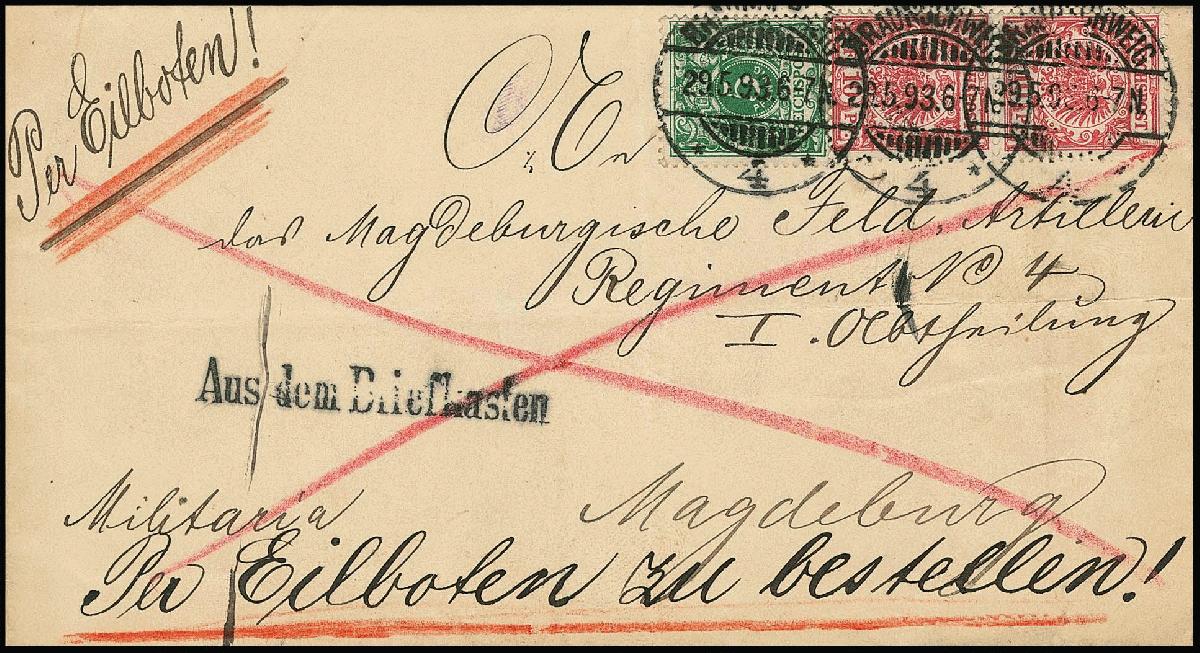 Per Eilboten!
BRAUNSCHWEIG
29.5.93.6-7N.
* 4 *
BRAUNSCHWEIG
29.5.93.6-7N.
* 4 *
BRAUNSCHWEIG
29.5.93.6-7N.
4
REICHSPOST
10 PF
An
das Magdeburgische Feld. Artillerie
Regiment No 4
I. Abtheilung
Aus dem Briefkasten
Militaria Magdeburg
Per Eilboten zu bestellen!